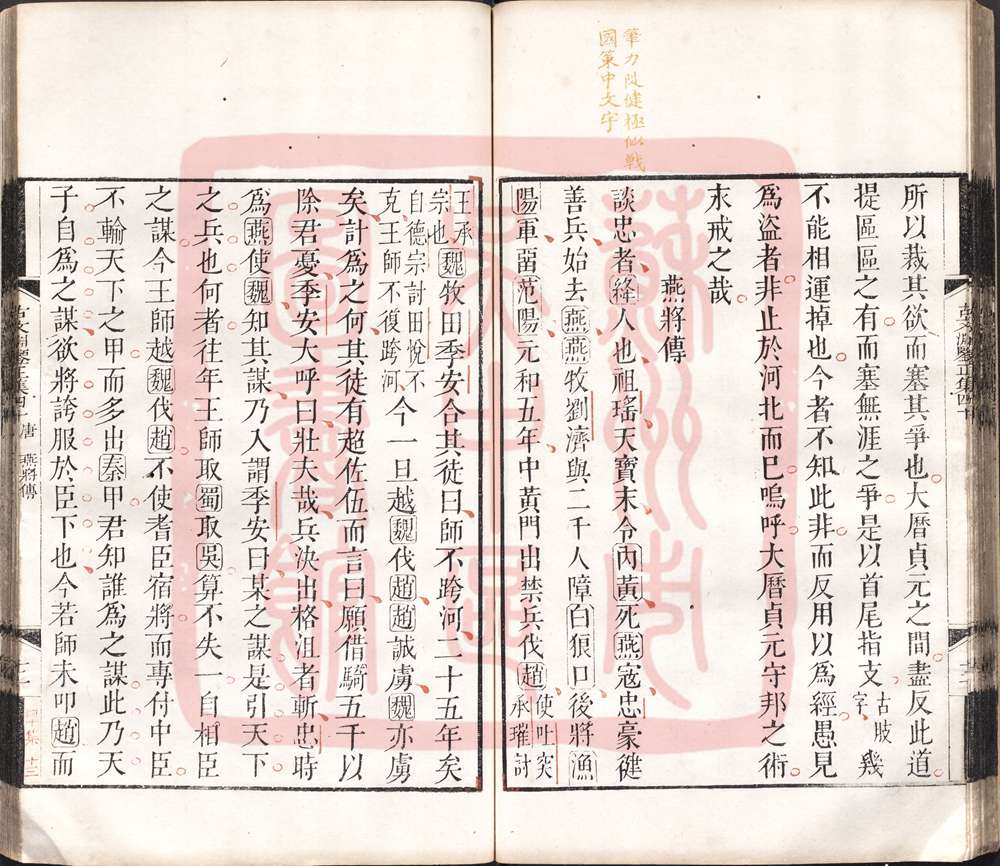 筆力陗健極似戰
國策中文字
所以裁其欲而塞其爭也大曆貞元之間盡反此道
提區區之有而塞無涯之爭是以首尾指支古肢字幾
不能相運掉也今者不知此非而反用以爲經愚見
爲盜者非止於河北而已嗚呼大曆貞元守邦之術
永戒之哉
燕將傳
談忠者絳人也祖瑤天寶末令內黃死燕寇忠豪健
善兵始去燕燕牧劉濟與二千人障白狼口後將漁
陽軍畱范陽元和五年中黃門出禁兵伐趙使吐突承璀討
王承宗也魏牧田季安合其徒曰師不跨河二十五年矣
自德宗討田悅不克王師不復跨河今一旦越魏伐趙趙誠虜魏亦虜
矣計爲之何其徒有超佐伍而言曰願借騎五千以
除君憂季安大呼曰壯夫哉兵決出格沮者斬忠時
爲燕使魏知其謀乃入謂季安曰某之謀是引天下
之兵也何者往年王師取蜀取吳算不失一自相臣
之謀今王師越魏伐趙不使耆臣宿將而專付中臣
不輸天下之甲而多出秦甲君知誰爲之謀此乃天
子自爲之謀欲將誇服於臣下也今若師未叩趙而
唐 燕將傳